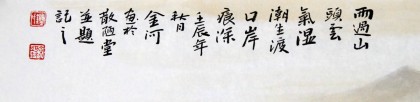 雨過山
頭雲
氣湿
潮生渡
口岸
痕深
壬辰年
秋月
金河
畫於
散怀堂
並題
記之